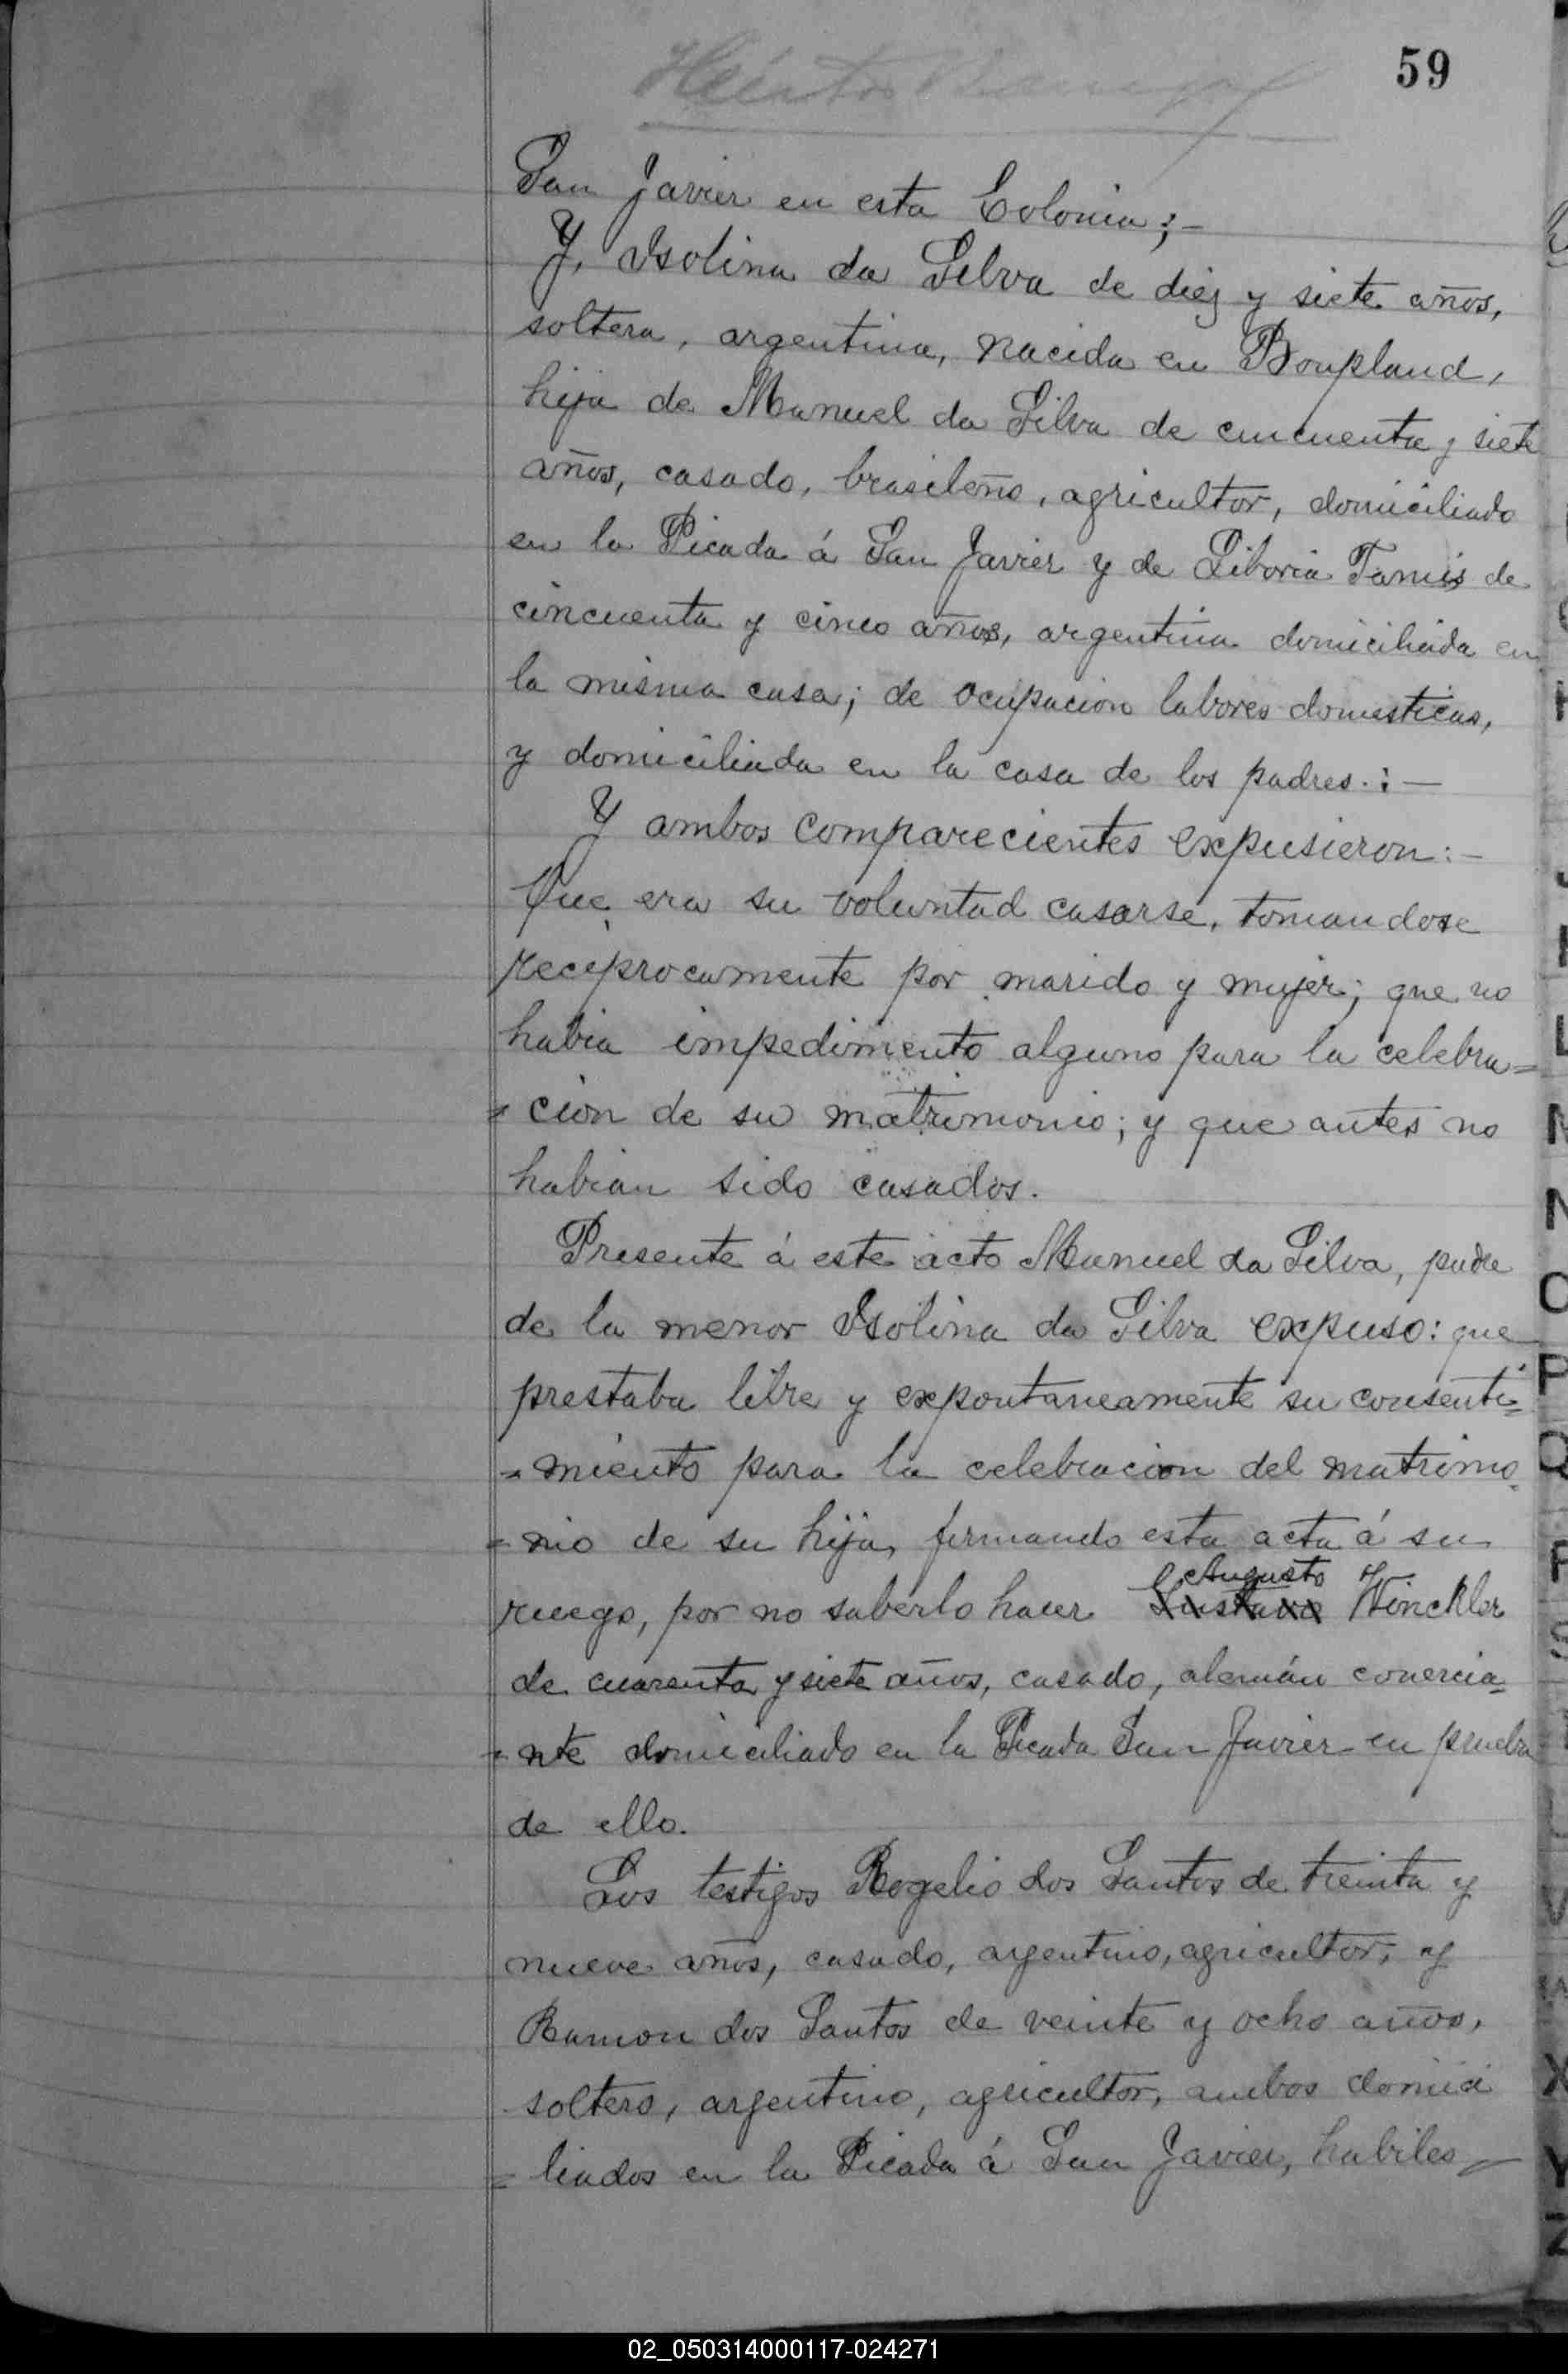 59
Héctor Kempf
San Javier en esta Colonia;-
Y, Isolina da Silva de diez y siete años,
soltera, argentina, nacida en Bonpland,
hija de Manuel da Silva de cincuenta y siete
años, casado, brasileño, agricultor, domiciliado
en la Picada á San Javier y de Liboria Tamis de
cincuenta y cinco años, argentina domiciliada en
la misma casa; de ocupacion labores domesticas,
y domiciliada en la casa de los padres.:—
Y ambos comparecientes expusieron:-
Que era su voluntad casarse, tomandose
reciprocamente por marido y mujer; que no
habia impedimento alguno para la celebra=
=cion de su matrimonio; y que antes no
habian sido casados.
Presente á este acto Manuel da Silva, padre
de la menor Isolina da Silva expuso: que
prestaba libre y expontaneamente su consenti=
=miento para la celebracion del matrimo=
=nio de su hija, firmando esta acta á su
Augusto
ruego, por no saberlo hacer Gustavo Winckler
de cuarenta y siete años, casado, alemán comercia=
=nte domiciliado en la Picada San Javier en prueba
de ello.
Los testigos Rogelio dos Santos de treinta y
nueve años, casado, argentino, agricultor, y
Ramon dos Santos de veinte y ocho años,
soltero, argentino, agricultor, ambos domici
=liados en la Picada á San Javier, habiles
02_050314000117-024271